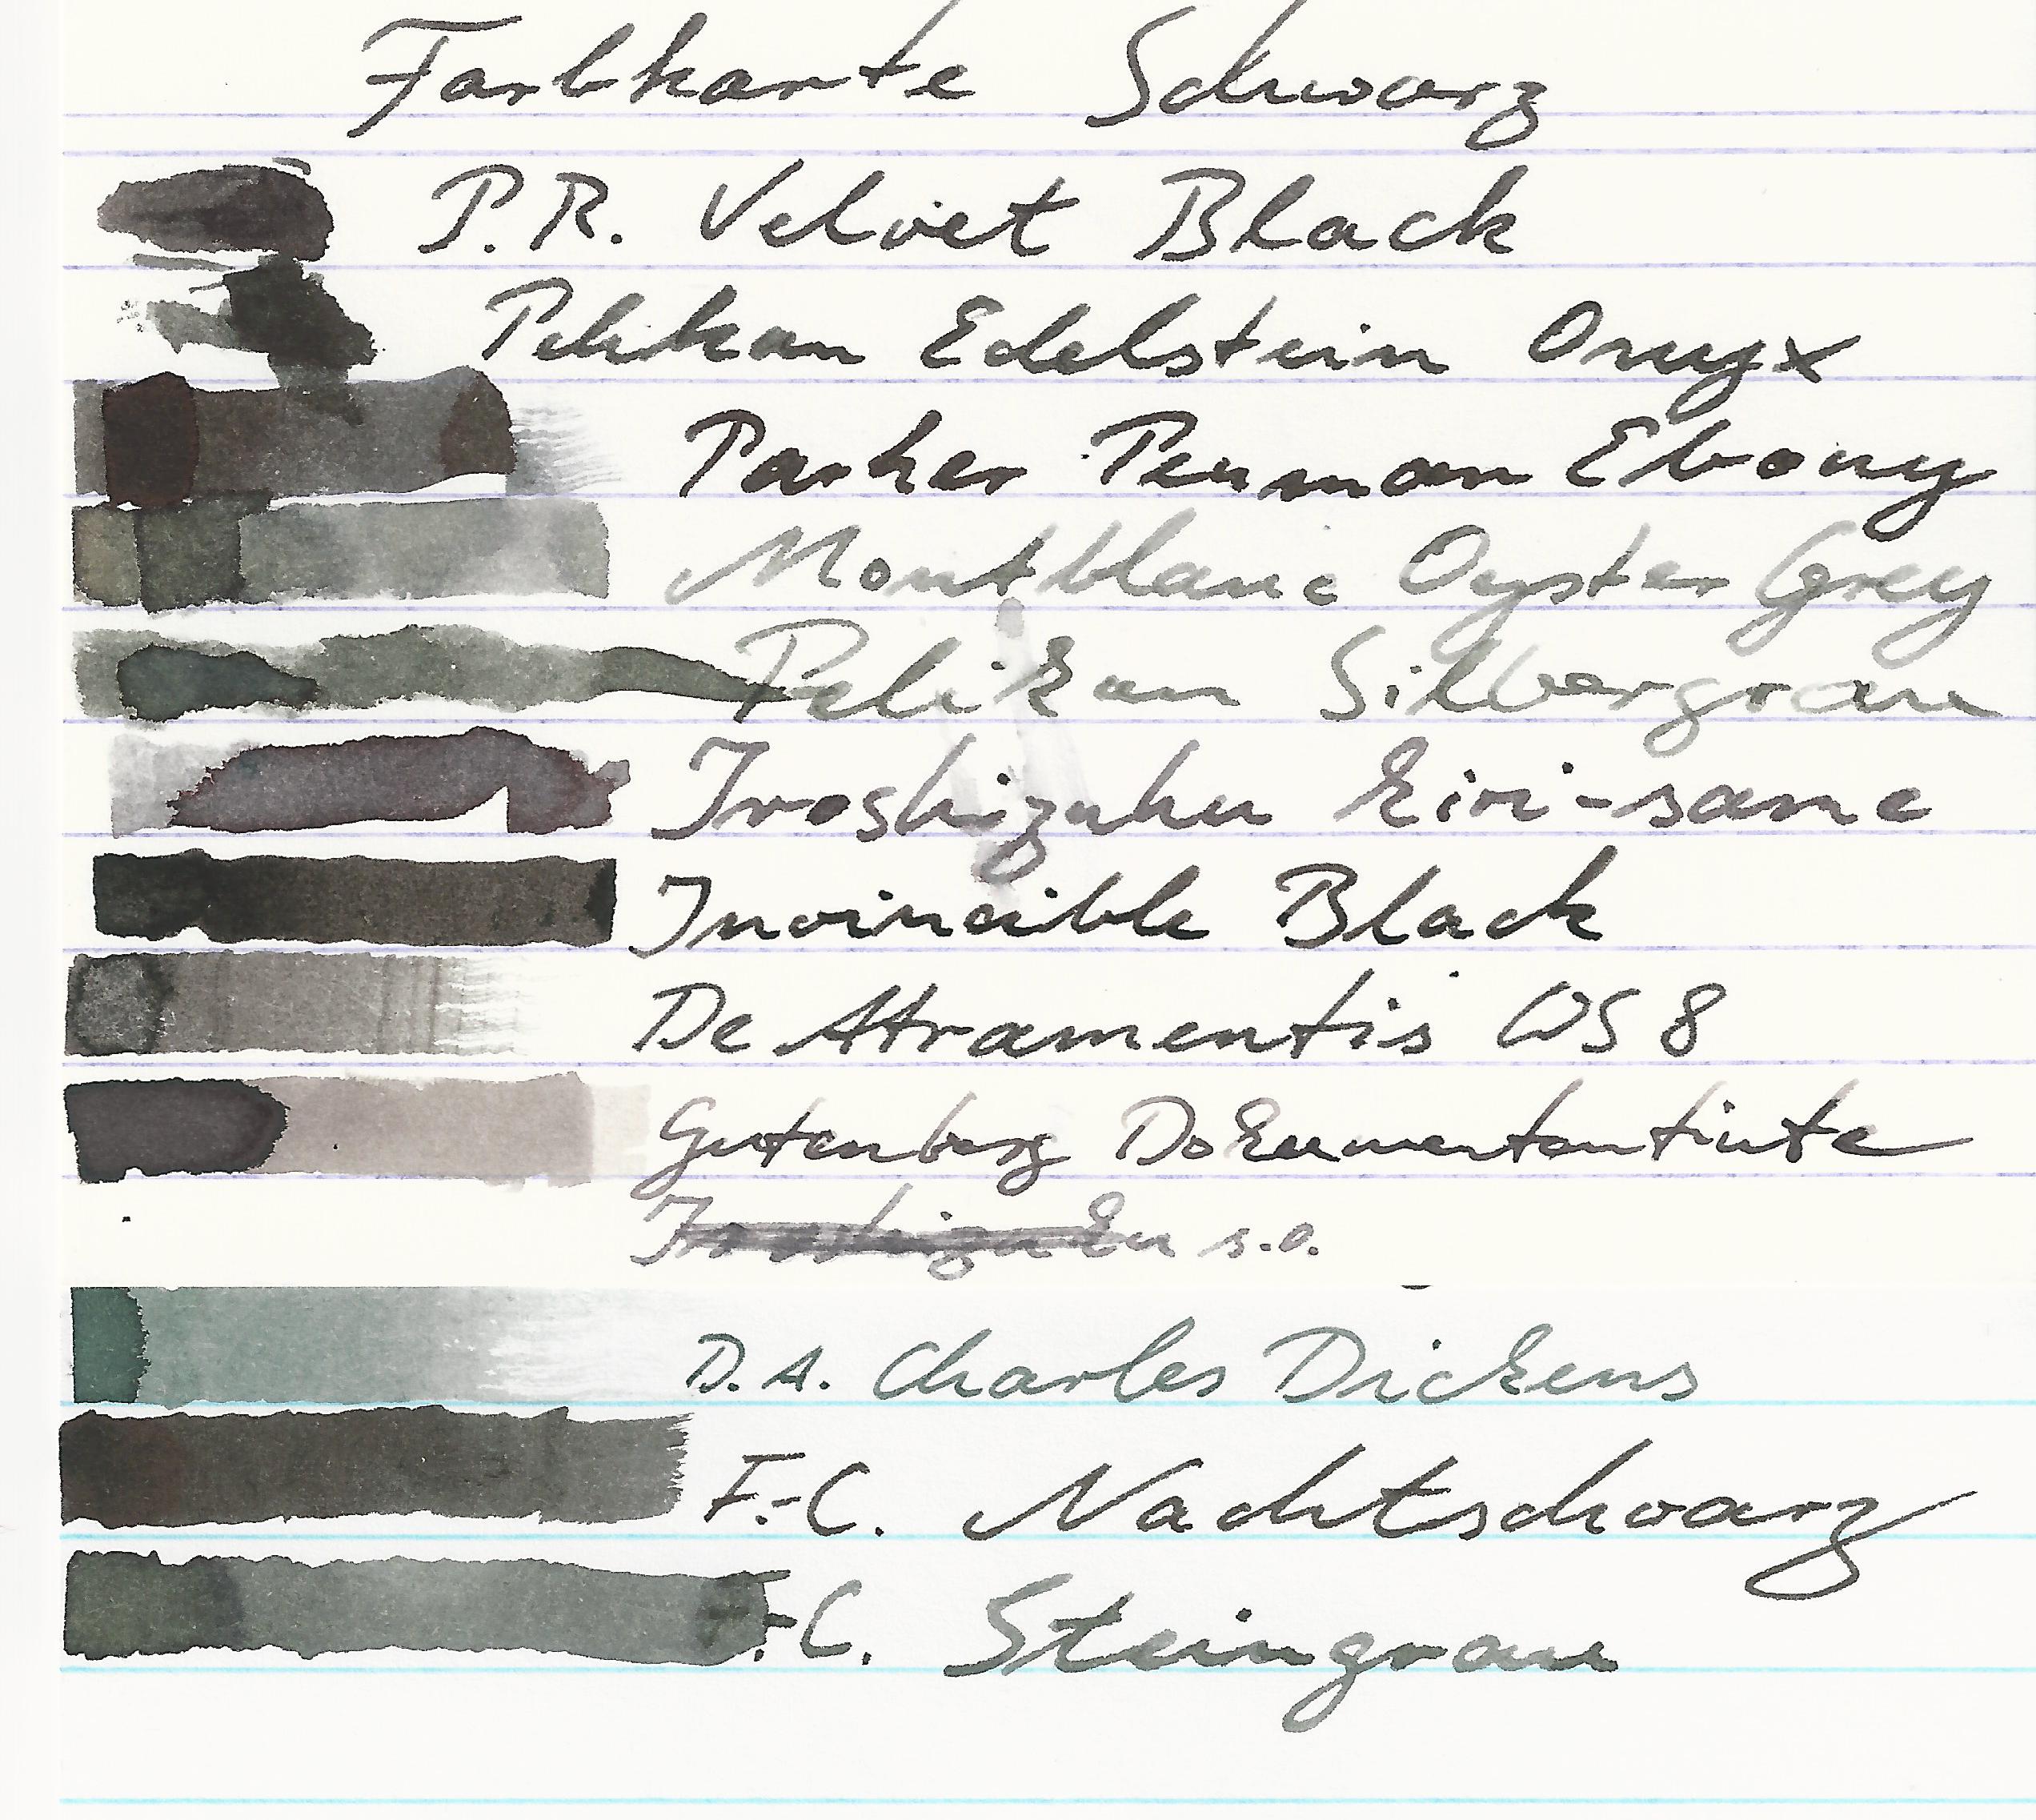 Farbkarte Schwarz
P.R. Velvet Black
Pelikan Edelstein Onyx
Parker Penman Ebony
Montblanc Oyster Grey
Pelikan Silbergrau
Iroshizuku Kiri-same
Invincible Black
De Atramentis WS 8
Gutenberg Dokumententinte
Iroshizuku s.o.
D.A. Charles Dickens
F.-C. Nachtschwarz
F.-C. Steingrau